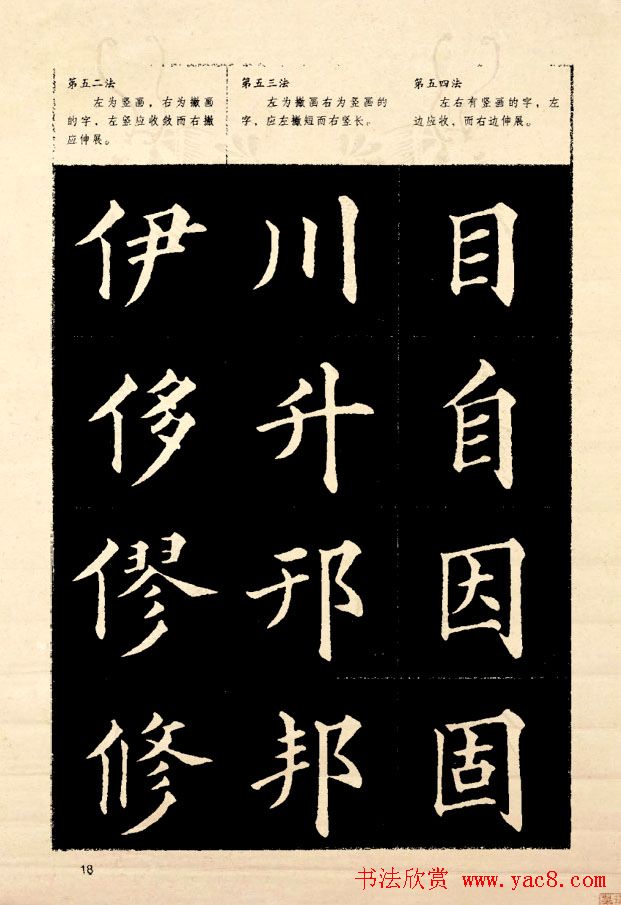 第五二法
左为竖画，右为撇画
的字，左竖应收敛而右撇
应伸展。
第五三法
左为撇画右为竖画的
字，应左撇短而右竖长。
第五四法
左右有竖画的字，左
边应收，而右边伸展。
伊 川 目
侈 升 自
僇 邗 因
修 邦 固
18
书法欣赏 www.yac8.com